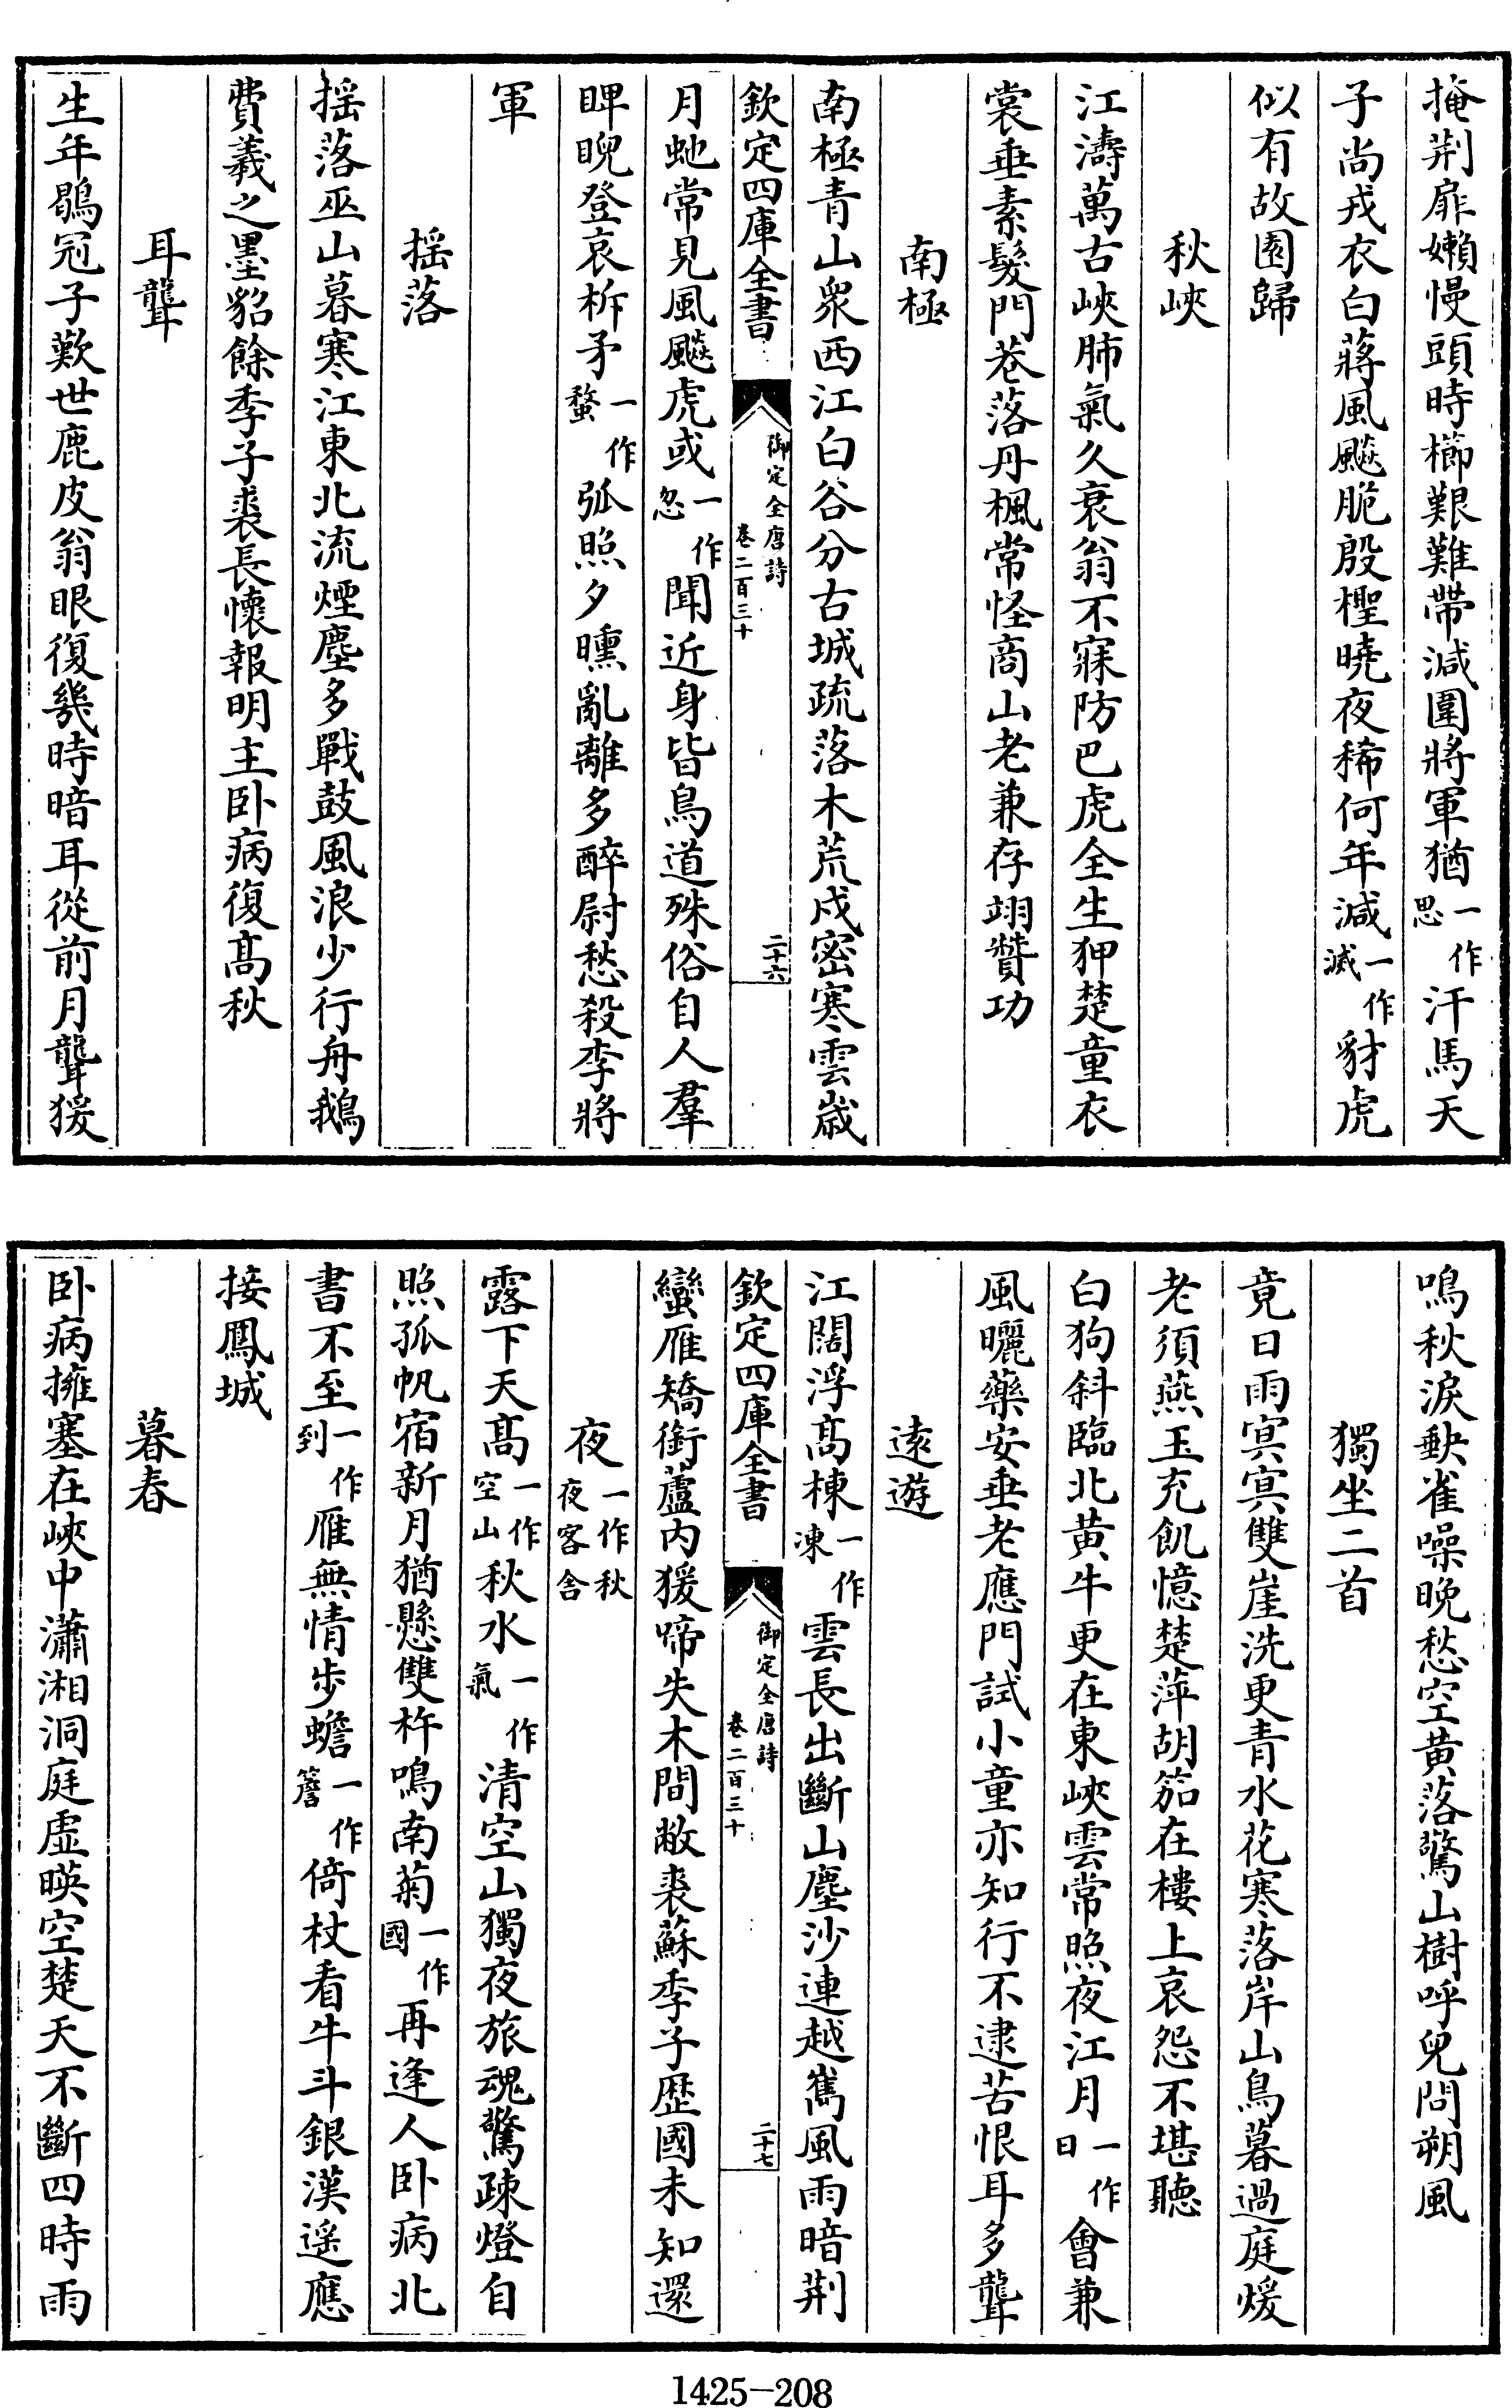 掩荆扉嬾慢頭時櫛艱難帶減圍將軍猶一作思汗馬天
子尚戎衣白蔣風飈脆殷檉曉夜稀何年減一作滅豺虎
似有故園歸
秋峽
江濤萬古峽肺氣久衰翁不寐防巴虎全生狎楚童衣
裳垂素髮門巷落丹楓常怪商山老兼存翊贊功
南極
南極青山衆西江白谷分古城疏落木荒戍密寒雲歲
欽定四庫全書
御定全唐詩
卷二百三十
二十六
月虵常見風飈虎或一作忽聞近身皆鳥道殊俗自人羣
睥睨登哀柝矛一作蝥弧照夕曛亂離多醉尉愁殺李將
軍
揺落
揺落巫山暮寒江東北流煙塵多戰鼓風浪少行舟鵝
費羲之墨貂餘季子裘長懷報明主卧病復髙秋
耳聾
生年鶡冠子歎世鹿皮翁眼復幾時暗耳從前月聾猨
鳴秋淚缺雀噪晚愁空黄落驚山樹呼兒問朔風
獨坐二首
竟日雨冥冥雙崖洗更青水花寒落岸山鳥暮過庭煖
老須燕玉充飢憶楚萍胡笳在樓上哀怨不堪聽
白狗斜臨北黄牛更在東峽雲常照夜江月一作日會兼
風曬藥安垂老應門試小童亦知行不逮苦恨耳多聾
逺遊
江闊浮髙棟一作凍雲長出斷山塵沙連越嶲風雨暗荆
欽定四庫全書
御定全唐詩
卷二百三十
二十七
蠻雁矯銜蘆内猨啼失木間敝裘蘇季子歴國未知還
夜一作秋夜客舍
露下天髙一作空山秋水一作氣清空山獨夜旅魂驚疎燈自
照孤帆宿新月猶懸雙杵鳴南菊一作國再逢人卧病北
書不至一作到雁無情步蟾一作簷倚杖看牛斗銀漢遥應
接鳳城
暮春
卧病擁塞在峽中瀟湘洞庭虛映空楚天不斷四時雨
1425-208